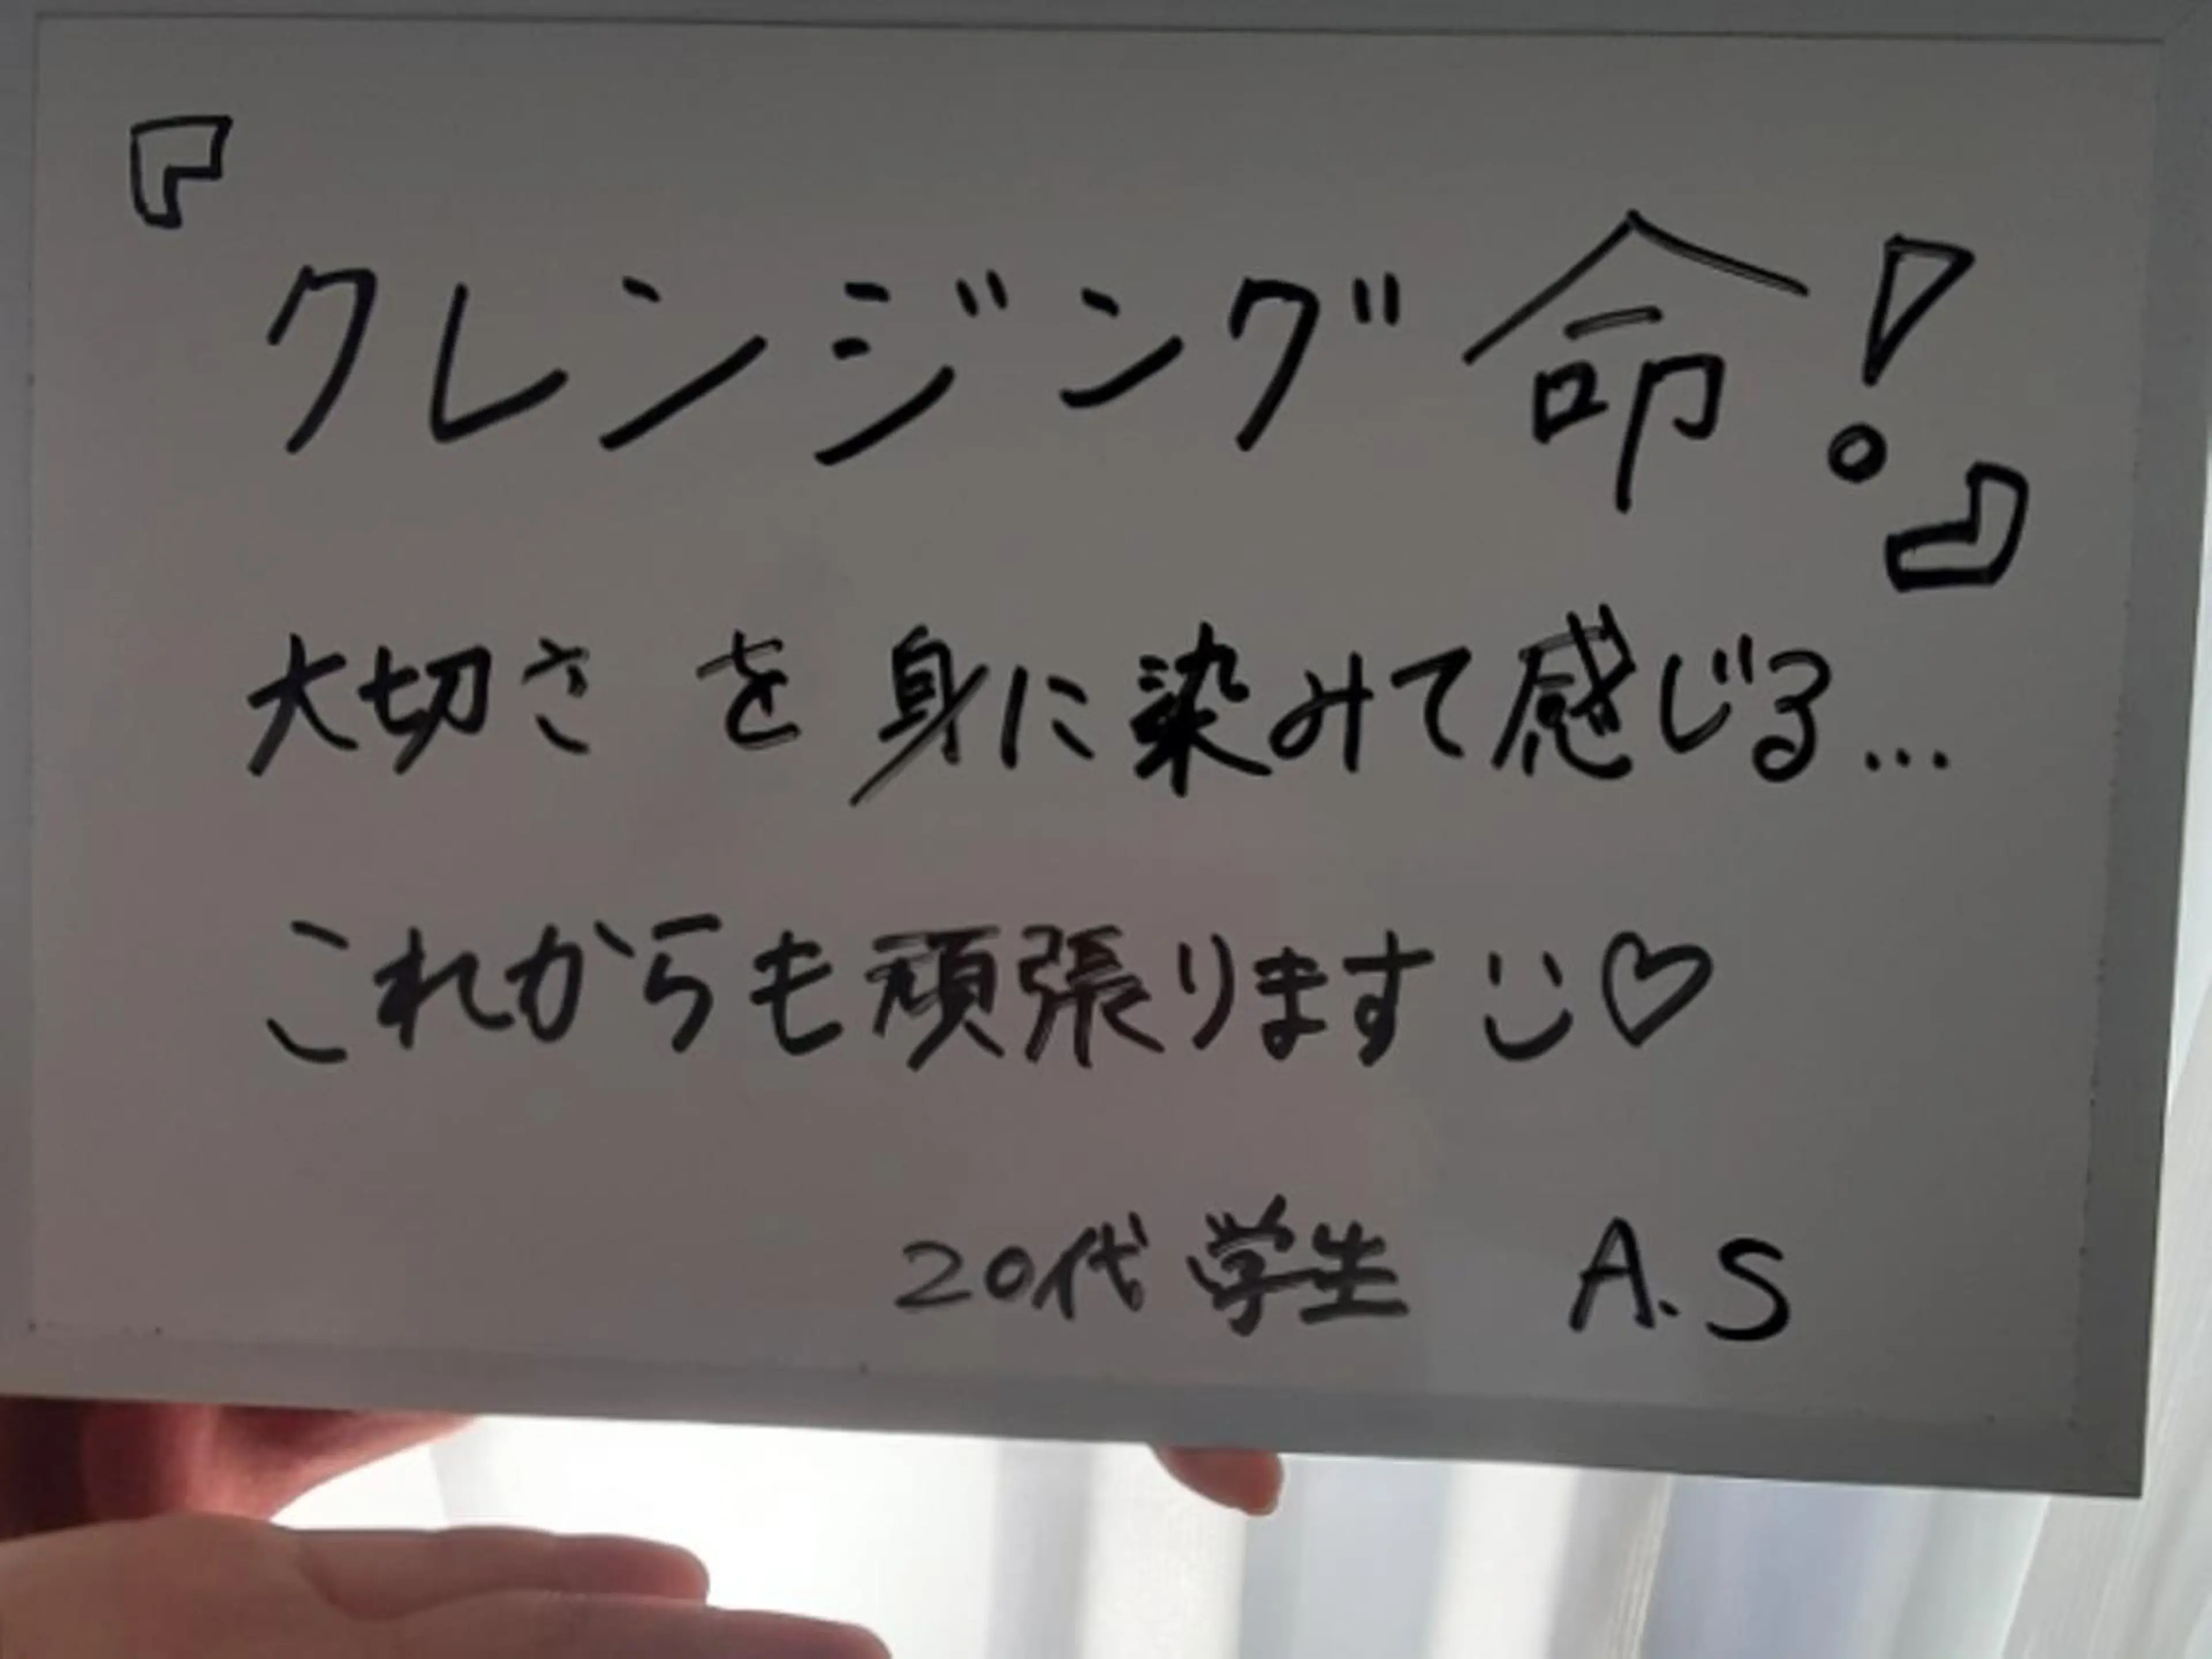 『クレンジング命！』
大切さを身に染みて感じる...
これからも頑張ります ツ♡
20代 学生 A.S